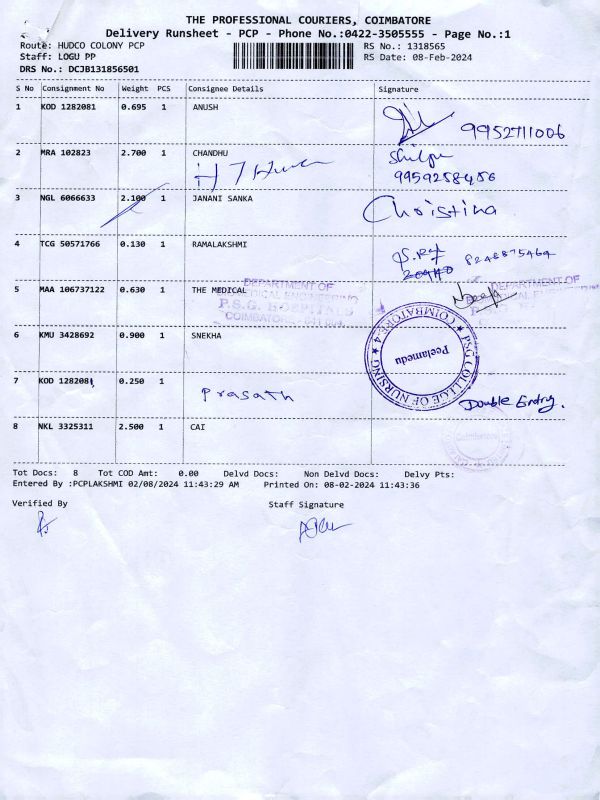 THE PROFESSIONAL COURIERS, COIMBATORE
Delivery Runsheet - PCP - Phone No.:0422-3505555 - Page No.:1
Route: HUDCO COLONY PCP RS No.: 1318565
Staff: LOGU PP RS Date: 08-Feb-2024
DRS No.: DCJB131856501
S No Consignment No Weight PCS Consignee Details Signature
1 KOD 1282081 0.695 1 ANUSH
9952711006
2 MRA 102823 2.700 1 CHANDHU
9959258456
3 NGL 6066633 2.100 1 JANANI SANKA Christina
4 TCG 50571766 0.130 1 RAMALAKSHMI
8248875464
5 MAA 106737122 0.630 1 THE MEDICAL
DEPARTMENT OF
P.S.G. HOSPITALS
DEPARTMENT OF
6 KMU 3428692 0.900 1 SNEKHA
PSG COLLEGE OF NURSING
COIMBATORE-4
Peelamedu
7 KOD 1282081 0.250 1 Prasath
Double Entry.
8 NKL 3325311 2.500 1 CAI
Tot Docs: 8 Tot COD Amt: 0.00 Delvd Docs: Non Delvd Docs: Delvy Pts:
Entered By :PCPLAKSHMI 02/08/2024 11:43:29 AM Printed On: 08-02-2024 11:43:36
Verified By Staff Signature